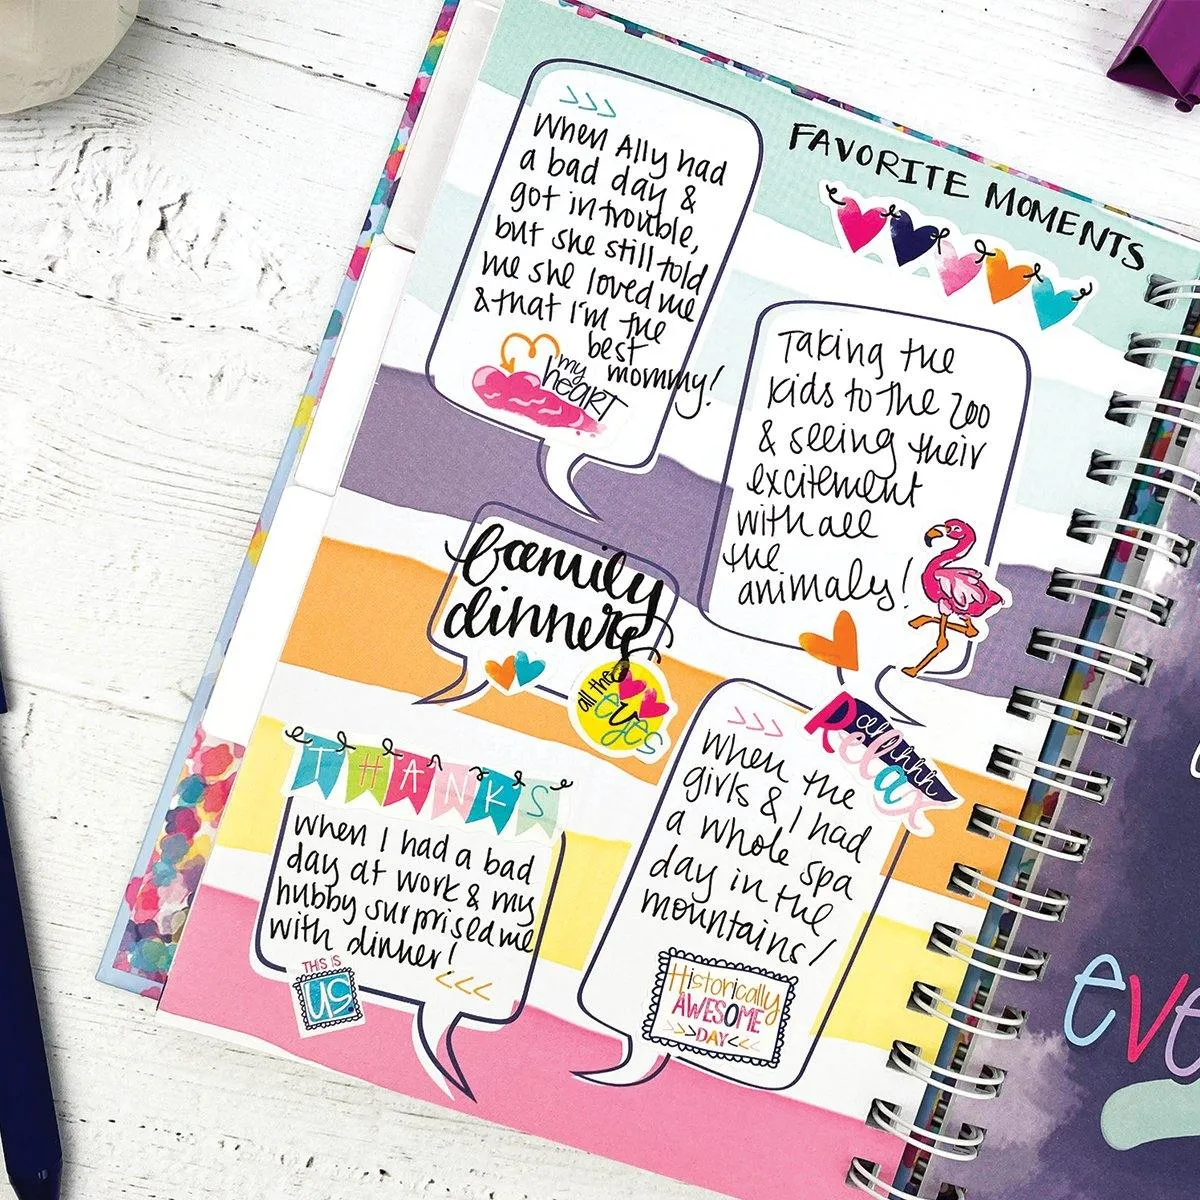 FAVORITE MOMENTS
>>>
When Ally had
a bad day &
got in trouble,
but she still told
me she loved me
& that I'm the
best
mommy!
my
heart
Taking the
kids to the zoo
& seeing their
excitement
with all
the
animals!
family
dinners
all the
eyes
THANKS
When I had a bad
day at work & my
hubby surprised me
with dinner!
<<<
THIS IS
US.
>>>
When the
girls & I had
a whole spa
day in the
mountains!
Relax
Historically
AWESOME
>>>DAY<<<
eve